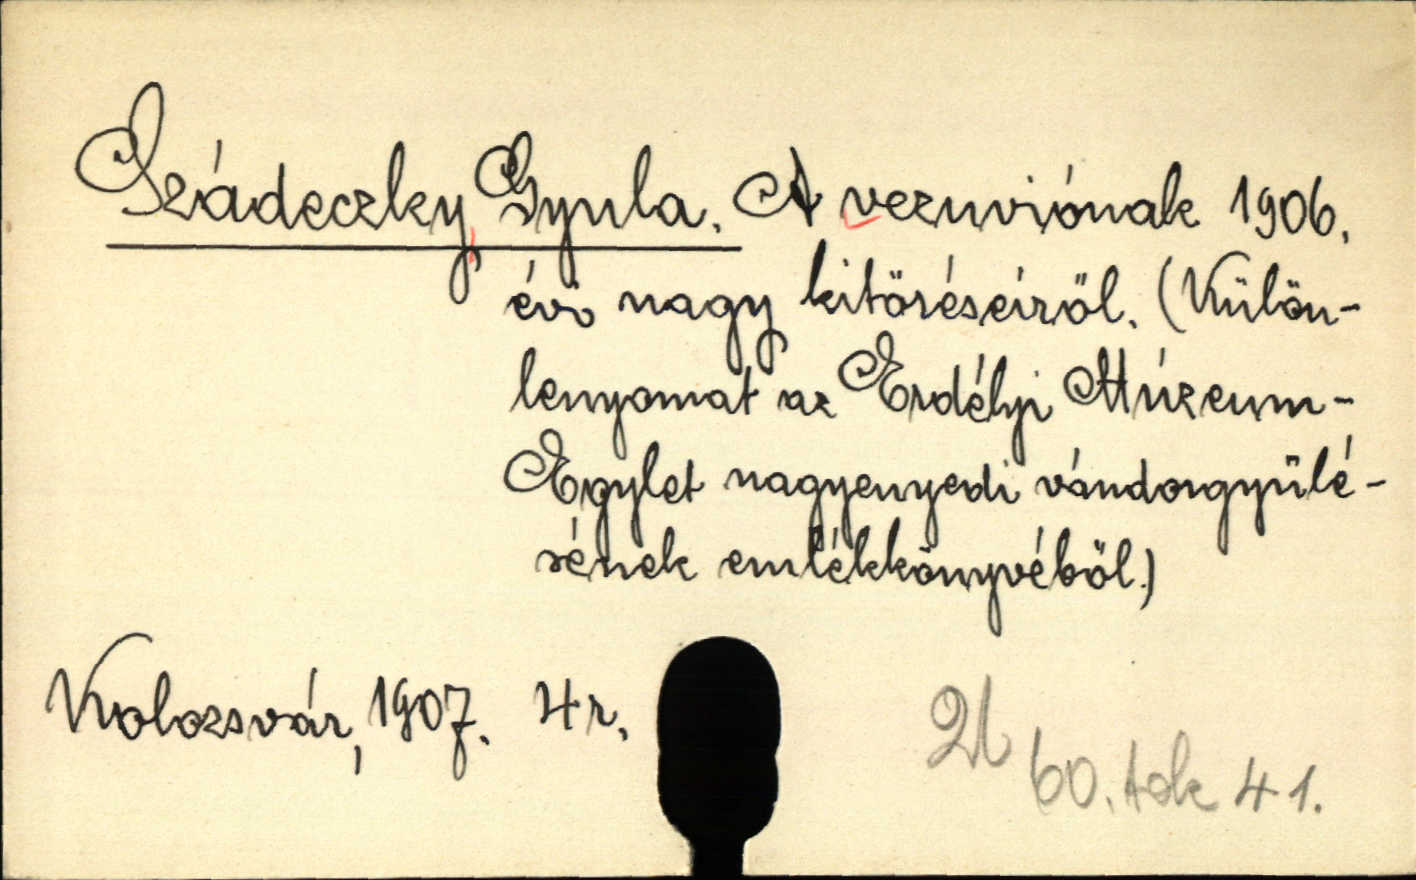 Szádeczky, Gyula. A vezuviónak 1906.
évi nagy kitöréseiröl. (Külön-
lenyomat az Erdélyi Múzeum-
Egylet nagyenyedi vándorgyülé-
sének emlékkönyvéböl.)
Kolozsvár, 1907. 4r.
60. tok 41.